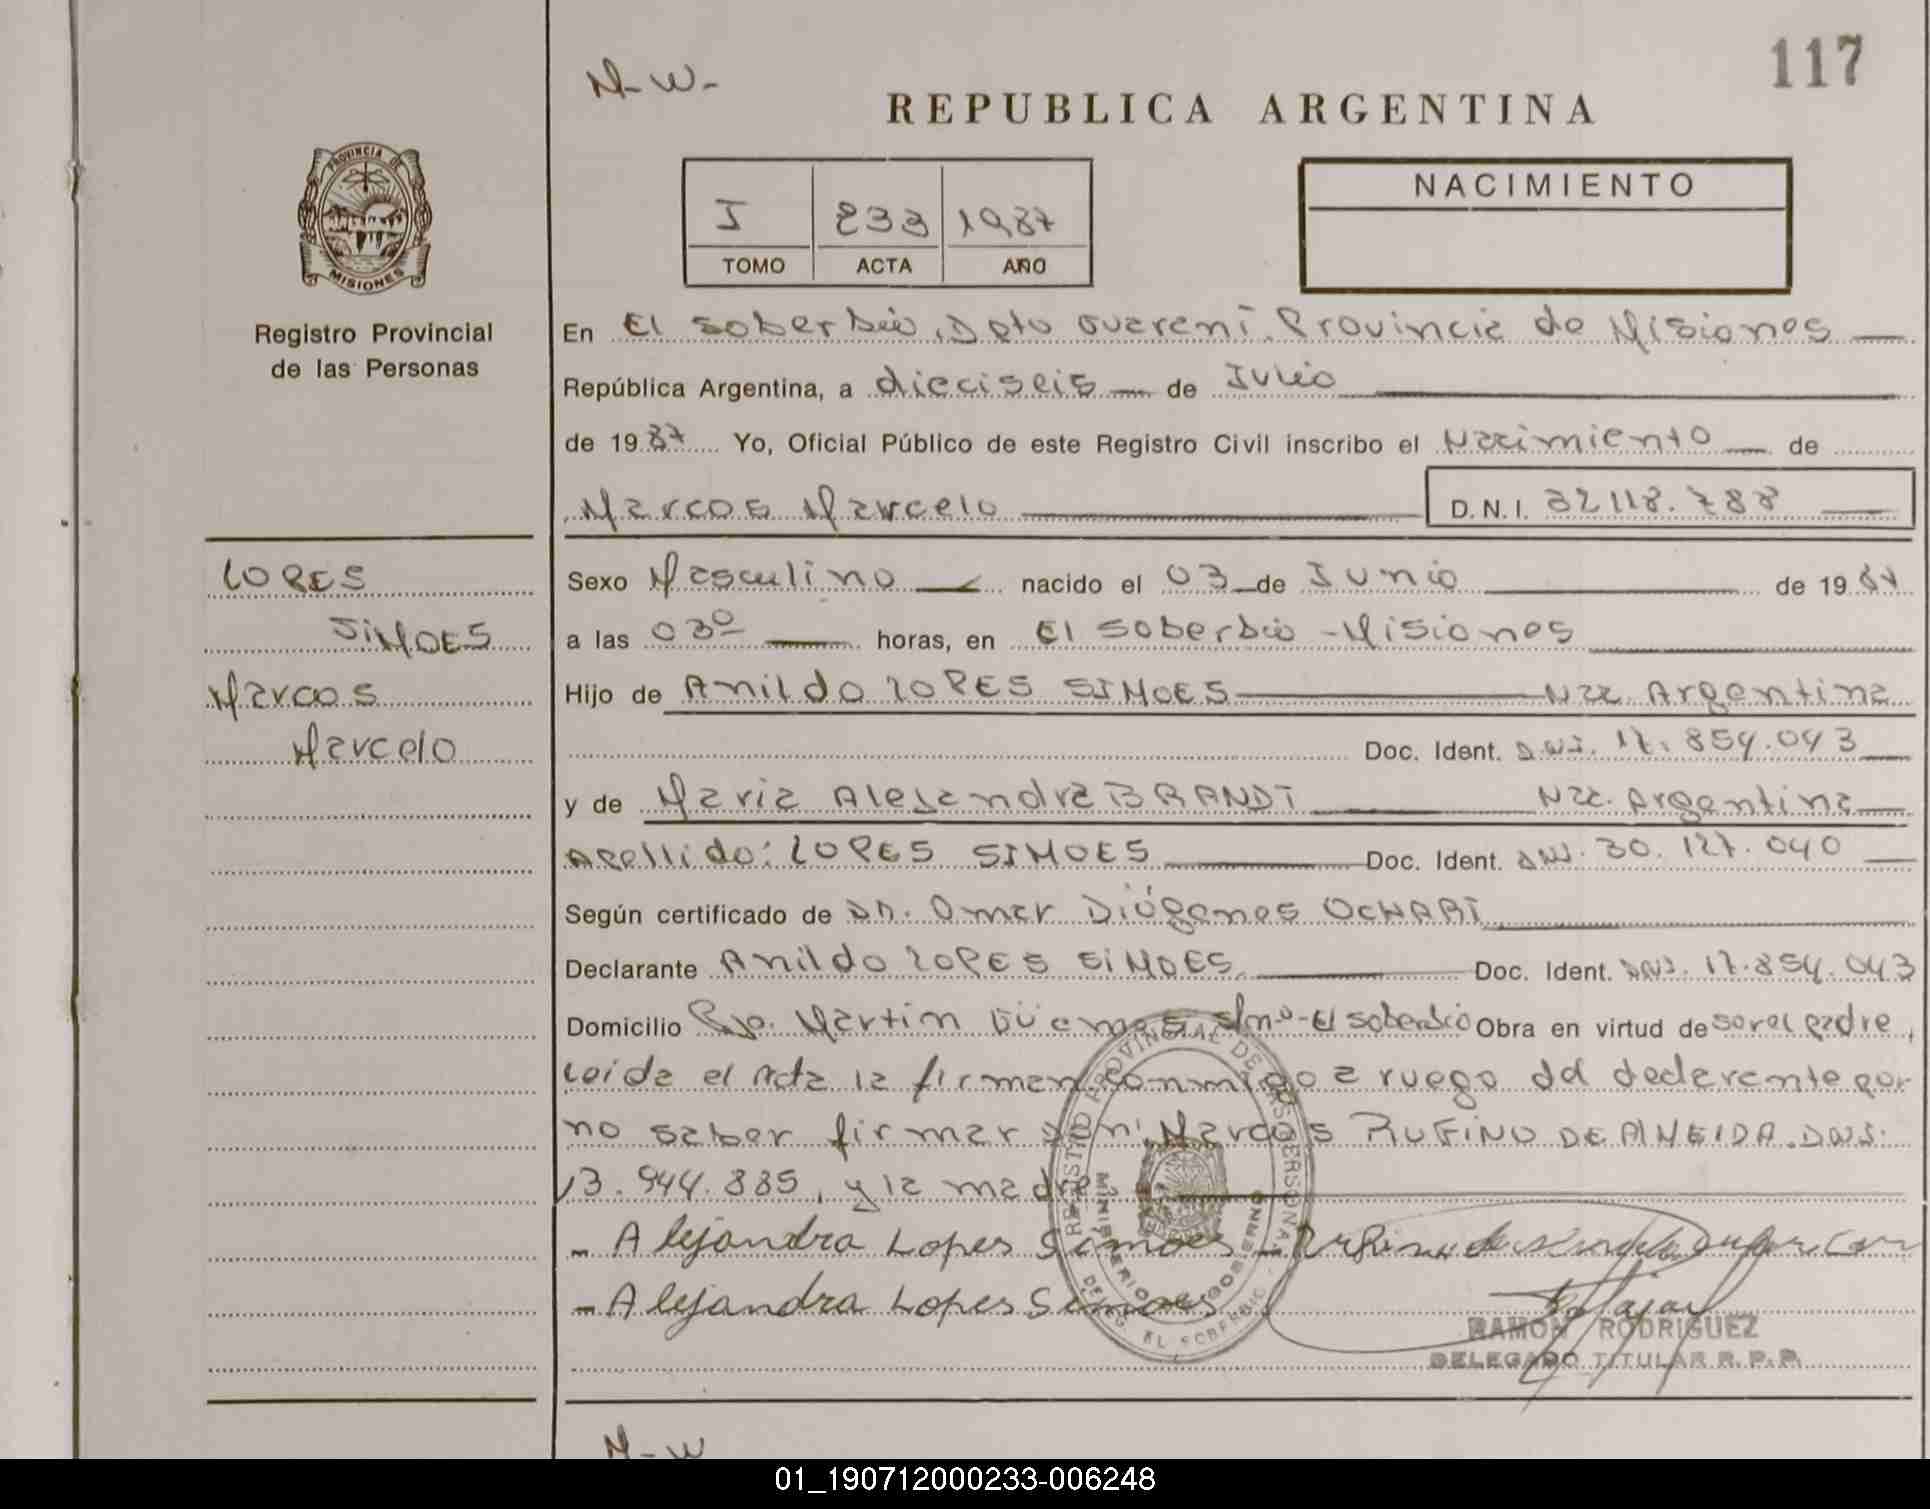 117
M-W-
REPUBLICA ARGENTINA
PROVINCIA DE
MISIONES
Registro Provincial
de las Personas
I 233 1987
TOMO ACTA AÑO
NACIMIENTO
En El Soberbio, Dpto Guaraní, Provincia de Misiones
República Argentina, a dieciseis de Julio
de 1987 Yo, Oficial Público de este Registro Civil inscribo el Nacimiento de
Marcos Marcelo D.N.I. 32118.788
LOPES
SiMOES
Marcos
Marcelo
Sexo Masculino nacido el 03 de Junio de 1987
a las 03º horas, en El Soberbio - Misiones
Hijo de Anildo LOPES SIMOES Nac. Argentina
Doc. Ident. DNI. 17.854.043
y de Maria Alejandra BRANDT Nac. Argentina
Apellido: LOPES SIMOES Doc. Ident. DNI. 30.127.040
Según certificado de DR. Omar Diógenes OCHART
Declarante Anildo LOPES SiMOES Doc. Ident. DNI. 17.854.043
Domicilio Martin Güemes s/nº - El Soberbio Obra en virtud de ser el padre,
Leida el Acta la firman conmigo a ruego del declarante por
no saber firmar Marcos RUFINO DE ALMEIDA. DNI.
13.944.885, y la madre
- Alejandra Lopes Simoes -
- Alejandra Lopes Simoes
REGISTRO PROVINCIAL DE LAS PERSONAS
MINISTERIO DE GOBIERNO
DELEG. EL SOBERBIO
RAMON RODRIGUEZ
DELEGADO TITULAR R.P.P.
M-W
01_190712000233-006248